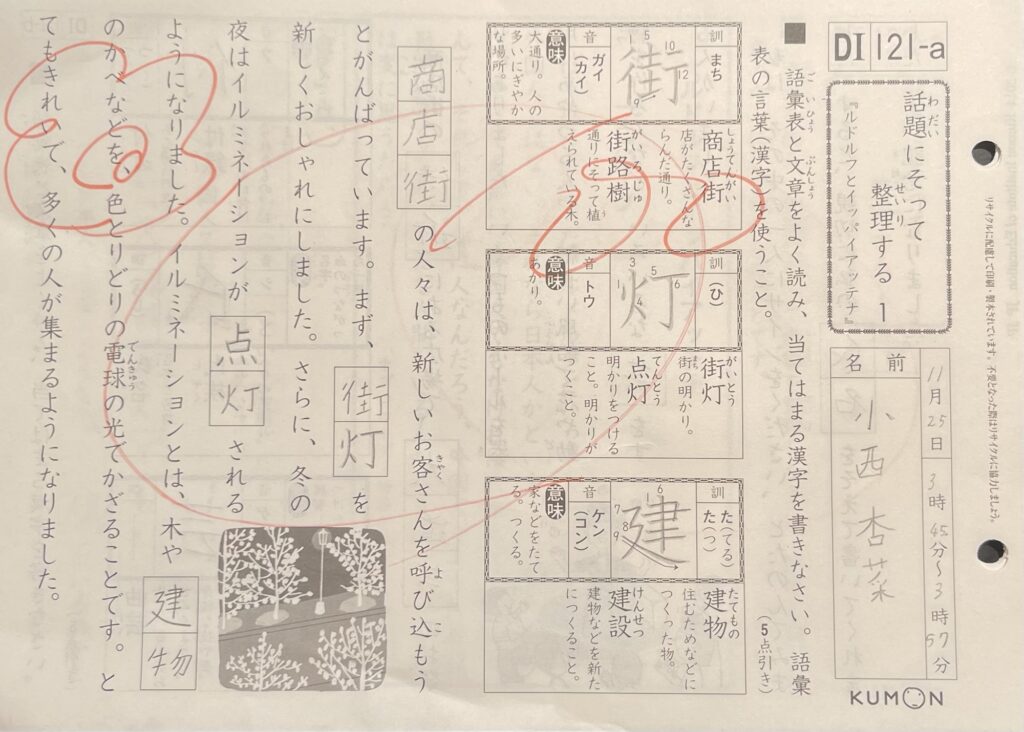 DI 121-a
話題にそって
わだい
整理する 1
せいり
『ルドルフとイッパイアッテナ』
名前
小西杏菜
11月25日
3時45分〜3時57分
KUMON
リサイクルに配慮して印刷・製本されています。不要となった際はリサイクルに協力しましょう。
■ 語彙表と文章をよく読み、当てはまる漢字を書きなさい。語彙
ごいひょう ぶんしょう
表の言葉(漢字)を使うこと。
(5点引き)
訓 まち
街
音 ガイ(カイ)
意味 大通り。人の
多いにぎやか
な場所。
商店街
しょうてんがい
店がたくさんな
らんだ通り。
街路樹
がいろじゅ
通りにそって植
う
えられている木。
訓 (ひ)
灯
音 トウ
意味 あかり。
街灯
がいとう
街の明かり。
まち
点灯
てんとう
明かりをつける
こと。明かりが
つくこと。
訓 た(てる)
た(つ)
建
音 ケン(コン)
意味 家などをたて
る。つくる。
建物
たてもの
住むためなどに
つくった物。
建設
けんせつ
建物などを新た
につくること。
商店街の人々は、新しいお客さんを呼び込もう
きゃく よ こ
とがんばっています。まず、街灯を
新しくおしゃれにしました。さらに、冬の
夜はイルミネーションが点灯される
ようになりました。イルミネーションとは、木や建物
のかべなどを、色とりどりの電球の光でかざることです。と
でんきゅう
てもきれいで、多くの人が集まるようになりました。